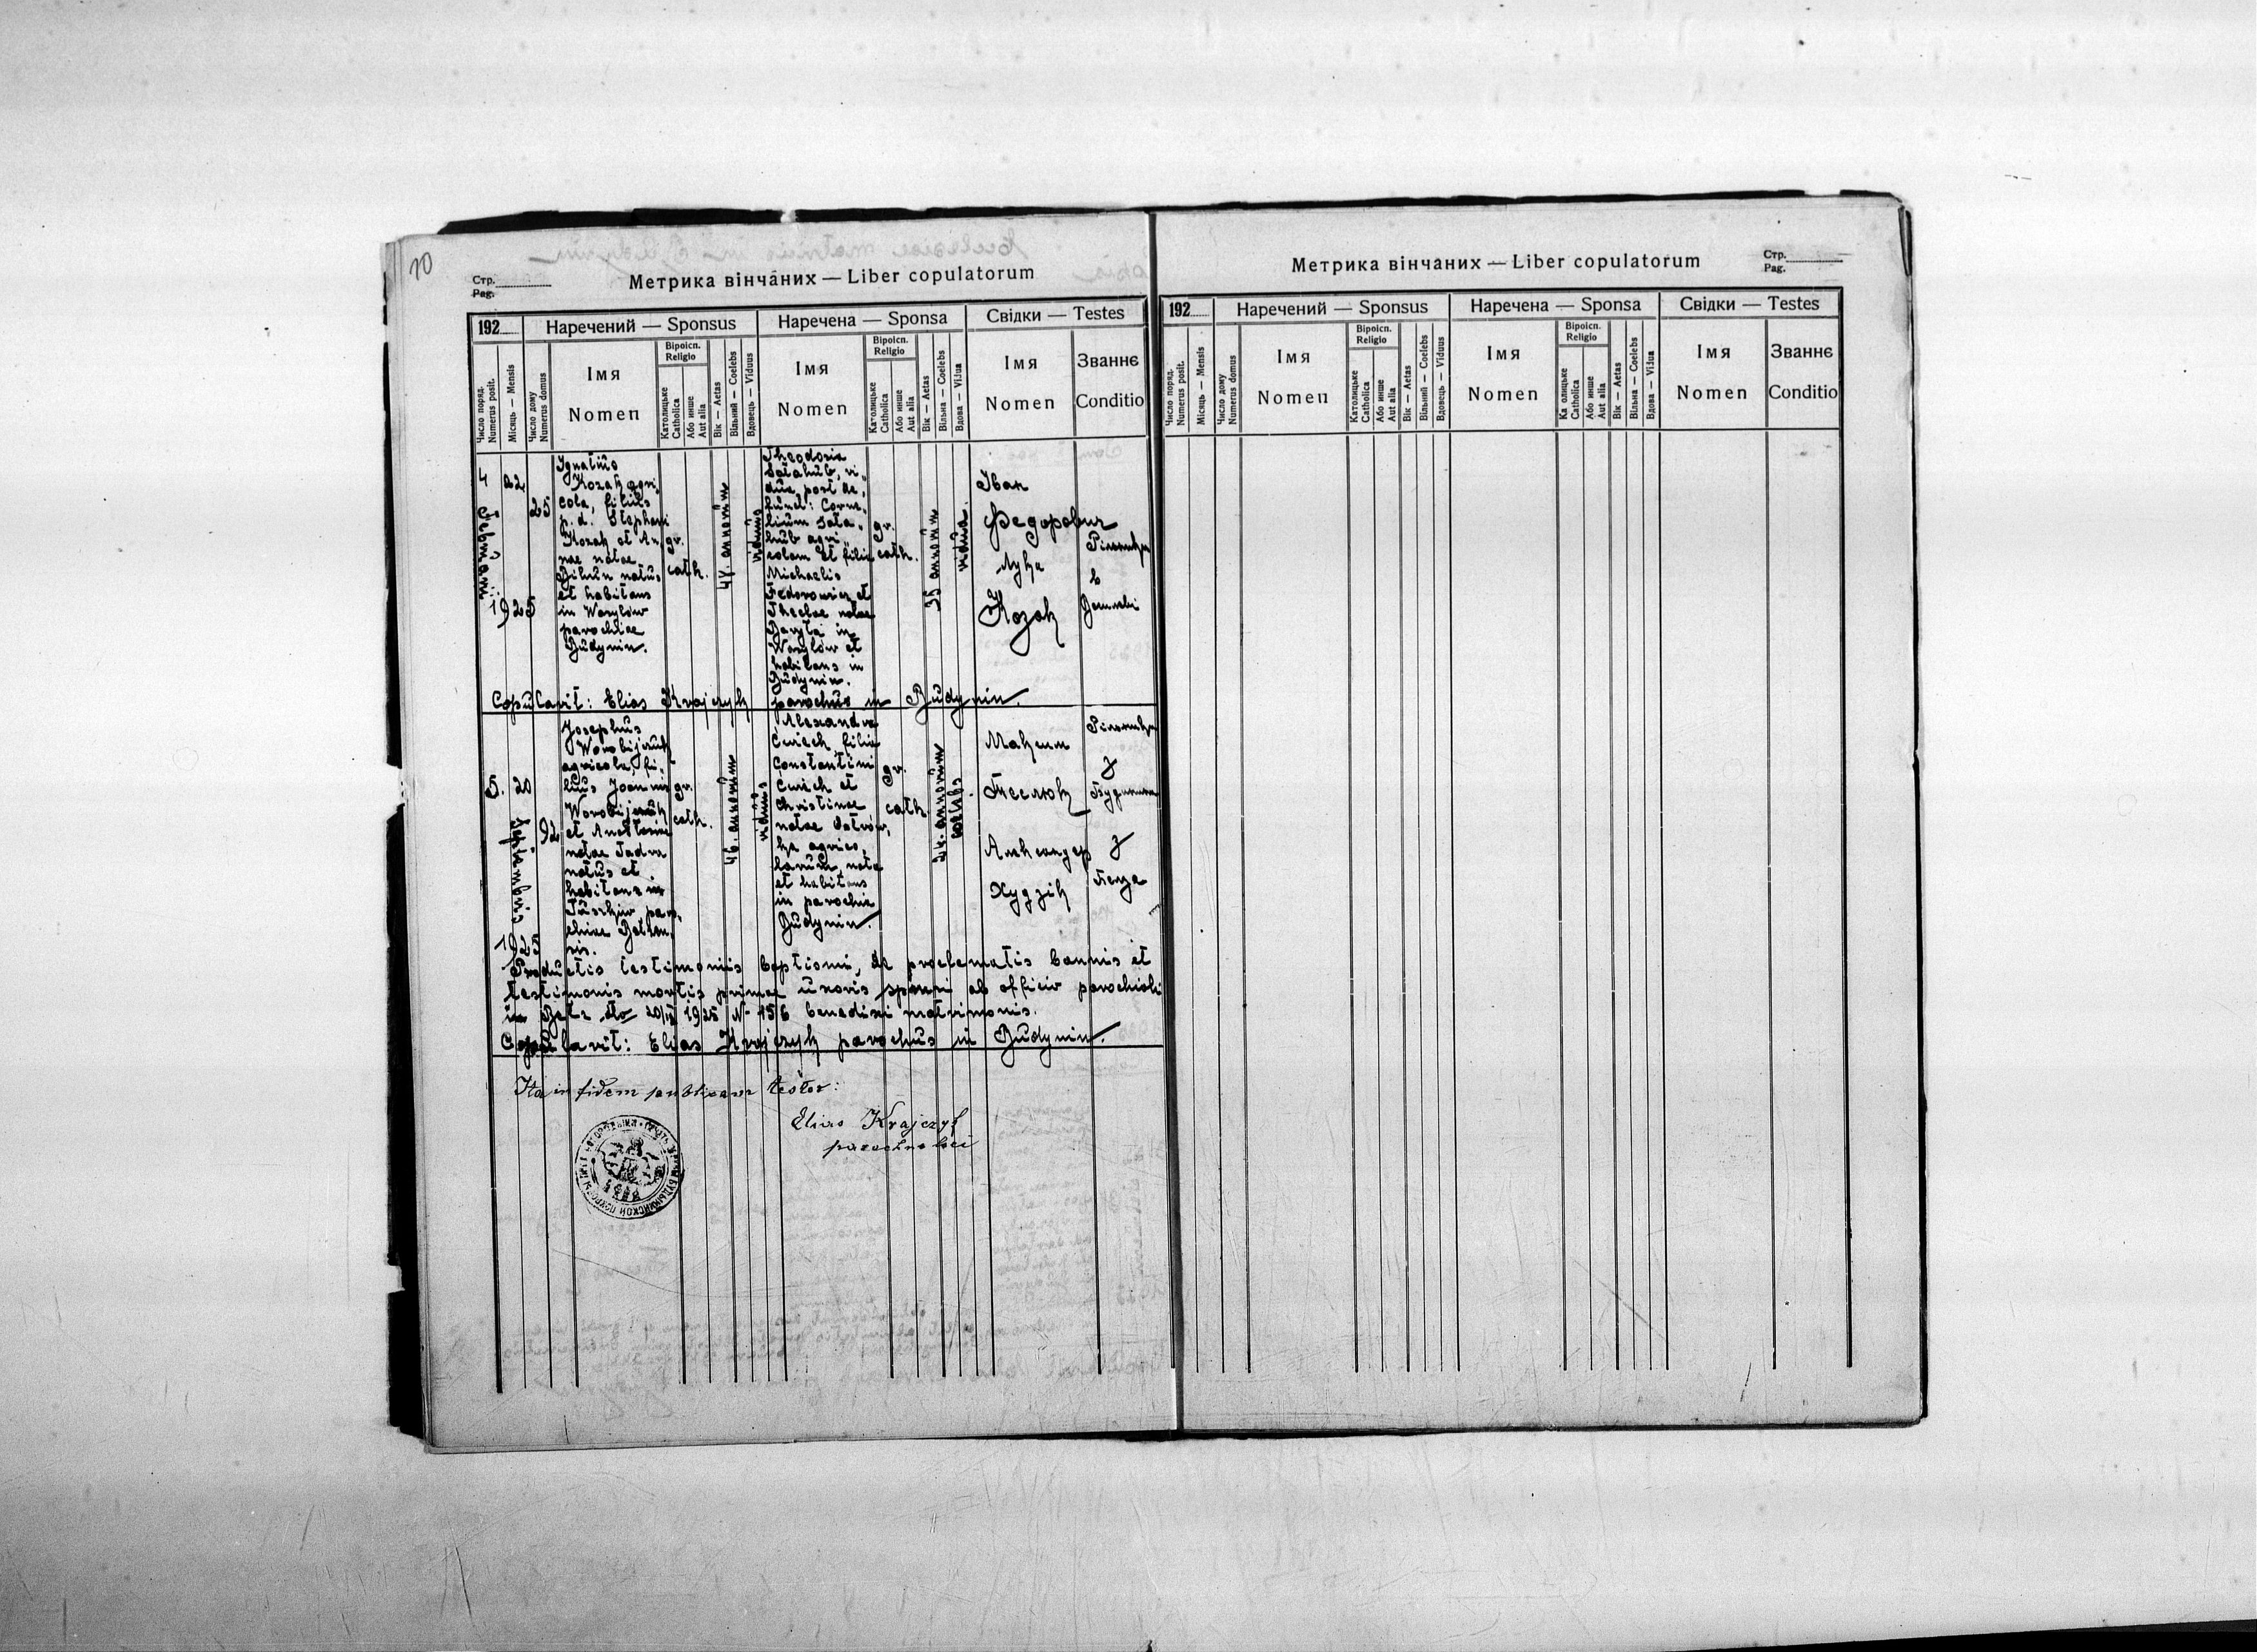 10
Стр.
Pag.
Метрика вінчаних — Liber copulatorum
192
Наречений — Sponsus
Наречена — Sponsa
Свідки — Testes
Число поряд.
Numerus posit.
Місяць — Mensis
Число дому
Numerus domus
Імя
Nomen
Віроісп.
Religio
Католицьке
Catholica
Або инше
Aut alia
Вік — Aetas
Вільний — Coelebs
Вдовець — Viduus
Імя
Nomen
Віроісп.
Religio
Католицьке
Catholica
Або инше
Aut alia
Вік — Aetas
Вільна — Coelebs
Вдова — Vidua
Імя
Nomen
Званнє
Conditio
4
22
1925
25
Ignatius
Kozak agri,
cola, filius
p. d. Stephani
Kozak et An,
nae natae
Bihun natus
et habitans
in Wasylów
parochiae
Budynin.
gr.
cath.
annorum
viduus
Theodosia
vi,
dua post de,
funct: Corne,
lium
agri,
colam et filia
Michaelis
Fedorowicz et
Theclae natae
in
Wasylów et
habitans in
Budynin.
gr.
cath.
35 annorum
vidua.
Іван
Федорович
Лука
Козак
в
Copulavit: Elias Krajczyk parochus in Budynin.
5. 20
1925
92
Josephus
Worobijczuk
agricola, fi,
lius Joannis
Worobijczuk
et
natae
natus et
habitans in
Tuszków paro,
chiae Belzen,
sis.
gr.
cath.
46. annorum
viduus
Alexandra
filia
Constantini
et
Christinae
natae
agrico,
larum, nata
et habitans
in parochia
Budynin.
gr.
cath.
24. annorum
coelebs
Максим
Теслюк
Александер
Худзік
з
з
Белза
Productis testimoniis baptismi, de proclamatis bannis et
testimonis mortis primae uxoris sponsi ab officio parochiali
in Belz dto 20/IX 1925 N- 156 benedixi matrimonis.
Copulavit: Elias Krajczyk parochus in Budynin.
Ita in fidem publicam testor:
Elias Krajczyk
parochus loci
Стр.
Pag.
Метрика вінчаних — Liber copulatorum
192
Наречений — Sponsus
Наречена — Sponsa
Свідки — Testes
Число поряд.
Numerus posit.
Місяць — Mensis
Число дому
Numerus domus
Імя
Nomen
Віроісп.
Religio
Католицьке
Catholica
Або инше
Aut alia
Вік — Aetas
Вільний — Coelebs
Вдовець — Viduus
Імя
Nomen
Віроісп.
Religio
Ка олицьке
Catholica
Або инше
Aut alia
Вік — Aetas
Вільна — Coelebs
Вдова — Vidua
Імя
Nomen
Званнє
Conditio